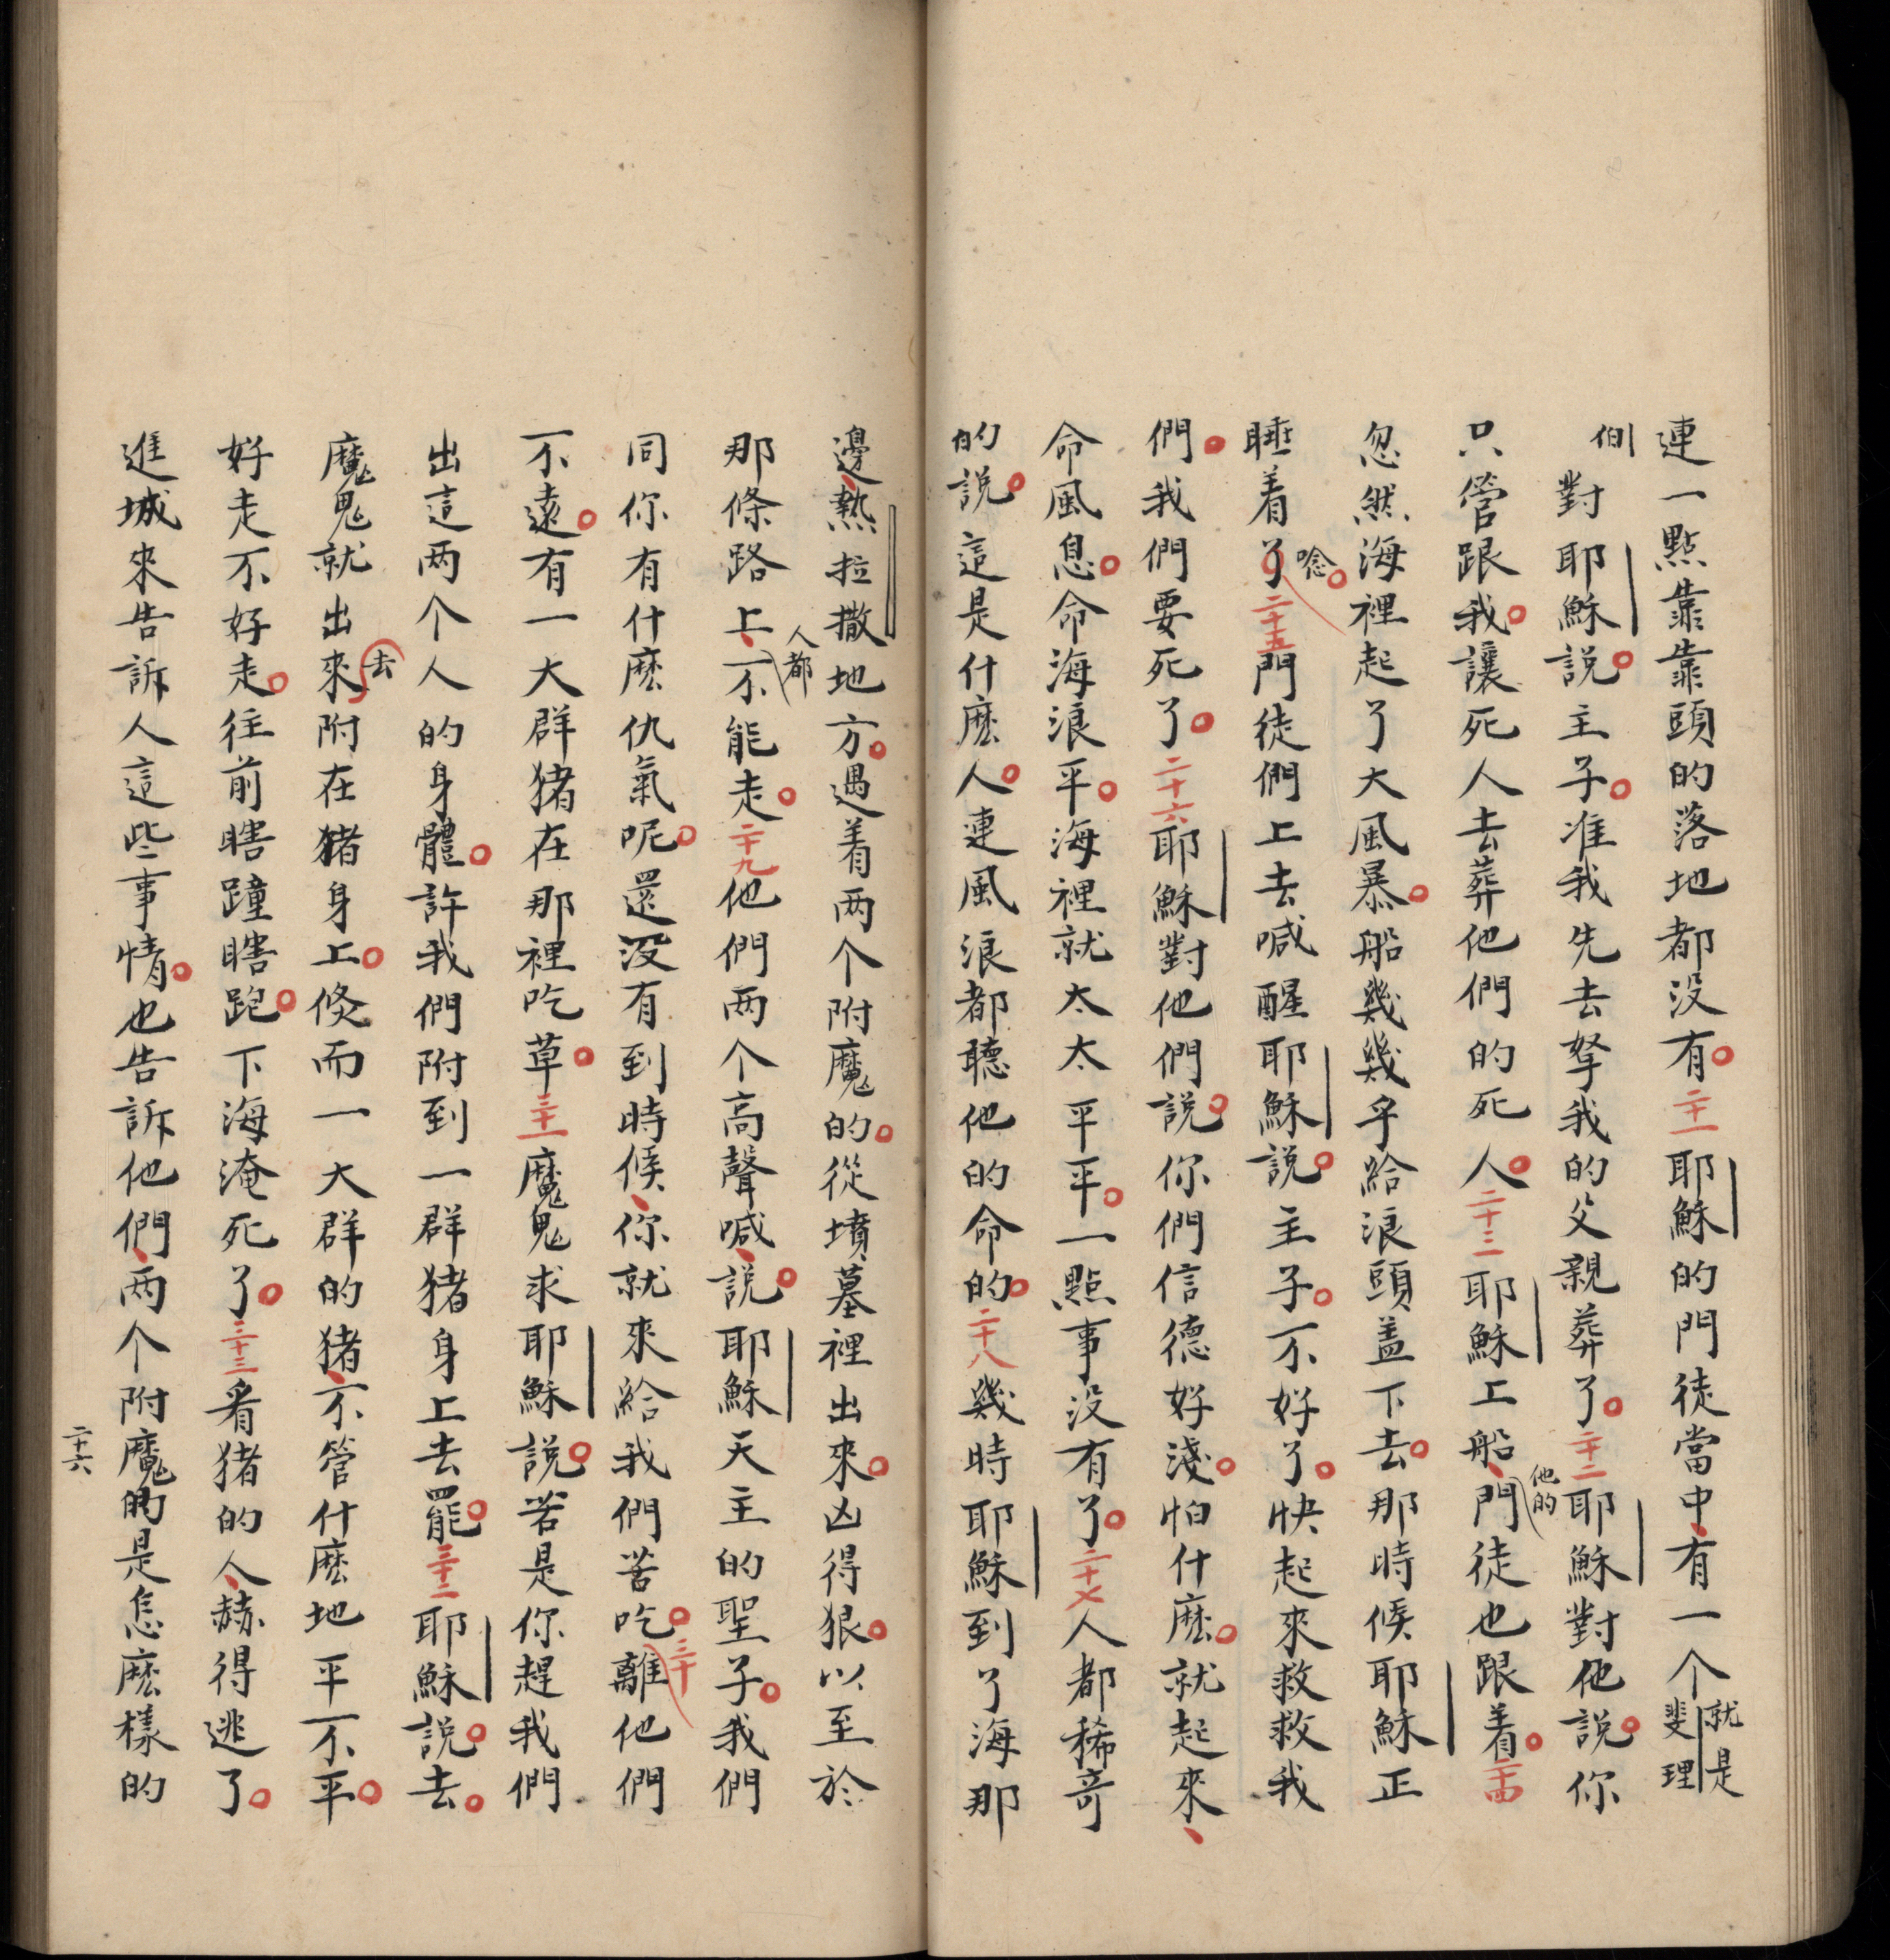 連一點靠靠頭的落地都没有。二十一耶穌的門徒當中、有一个就是斐理
伯對耶穌説。主子。准我先去拏我的父親葬了。二十二耶穌對他説。你
只管跟我。讓死人去葬他們的死人。二十三耶穌上船、他的門徒也跟着。二十四
忽然海裡起了大風暴。船幾幾乎給浪頭盖下去。那時候耶穌正
睡着了唸。二十五門徒們上去喊醒耶穌説。主子。不好了。快起來救救我
們。我們要死了。二十六耶穌對他們説。你們信德好淺。怕什麽。就起來、
命風息。命海浪平。海裡就太太平平。一點事没有了。二十七人都稀奇
的説。這是什麽人。連風浪都聽他的命的。二十八幾時耶穌到了海那
邊、熱拉撒地方。遇着两个附魔的。從墳墓裡出來。凶得狠。以至於
那條路上、人都不能走。二十九他們两个高聲喊、説。耶穌天主的聖子。我們
同你有什麽仇氣呢。還没有到時候、你就來給我們苦吃。三十離他們
不遠。有一大群猪在那裡吃草。三十一魔鬼求耶穌説。若是你趕我們
出這两个人的身體。許我們附到一群猪身上去罷。三十二耶穌説。去。
魔鬼就出來去附在猪身上。倐而一大群的猪、不管什麽地平不平。
好走不好走。往前瞎蹱瞎跑。下海淹死了。三十三看猪的人、赫得逃了。
進城來告訴人這些事情。也告訴他們、两个附魔的是怎麽樣的
二十六